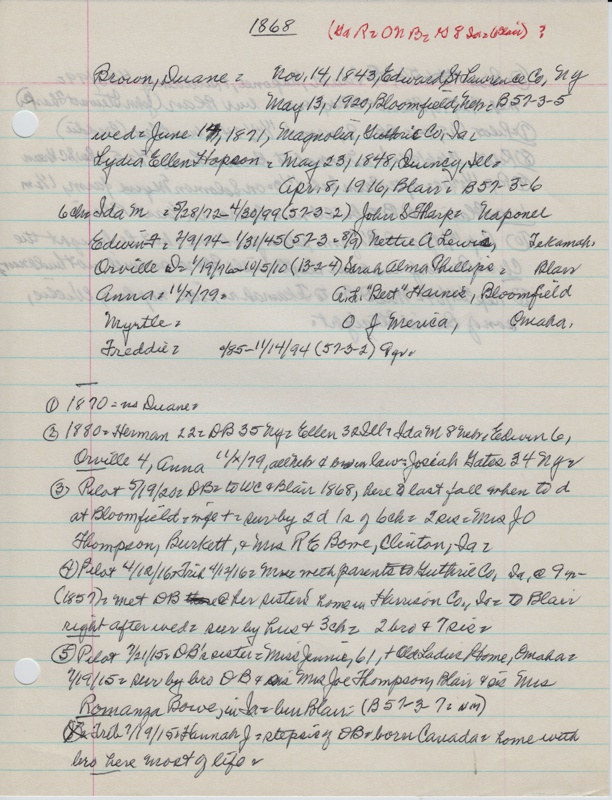 1868 (Ia R= O N B= ?
Brown, Duane = Nov, 14, 1843, Edward, St Lawrence Co, Ny
May 13, 1920, Bloomfield, Neb= B 57-3-5
wed= June 14, 1871, Magnolia, Guthrie Co, Ia=
Lydia Ellen Hopson = May 23, 1848, Quincy, Ill=
Apr, 8, 1916, Blair= B 57-3-6
6 ch= Ida M = 5/28/72-4/30/99 (57-3-2) John S Tharp= Naponel
Edwin F= 2/9/74-1/31/45 (57-3-8/9) Nettie A Lewis, Tekamah.
Orville D= 1/19/76-10/5/12 (13-2-4) Sarah Alma Phillips = Blair
Anna= 11/x/79= A.L. "Bert" Haines, Bloomfield
Myrtle= O J Merica, Omaha,
Freddie= 9/85-11/14/94 (57-3-2) 9 yr=
① 1870= ns Duane=
② 1880= Herman 22= DB 35 Ny= Ellen 32 Ill= Ida M 8 Neb= Edwin 6,
Orville 4, Anna 11/x/79, all Neb & bro in law= Josiah Gates 34 Ny=
③ Pilot 5/19/20= DB= to WC & Blair 1868, here til last fall when to d
at Bloomfield= = sur by 2d 1s of 6ch= 2 sis= Mrs JO
Thompson, Burkett, & Mrs R E Bowe, Clinton, Ia=
④ Pilot 4/12/16 + Trib 4/12/16= Mrs= with parents to Guthrie Co, Ia, @ 9 yr-
(1857)= met DB @ her sisters home in Harrison Co., Ia= to Blair
right after wed= sur by hus & 3ch= 2 bro & 7 sis=
⑤ Pilot 7/21/15= DB's sister= Miss Jennie, 61, + Old Ladies Home, Omaha=
7/19/15= sur by bro DB & sis Mrs Joe Thompson, Blair & sis Mrs
Romanza Bowe, in Ia= bur Blair= (B 57-3-7= nm)
Trib 7/19/15= Hannah J= stepsis of DB= born Canada= home with
bro here most of life=